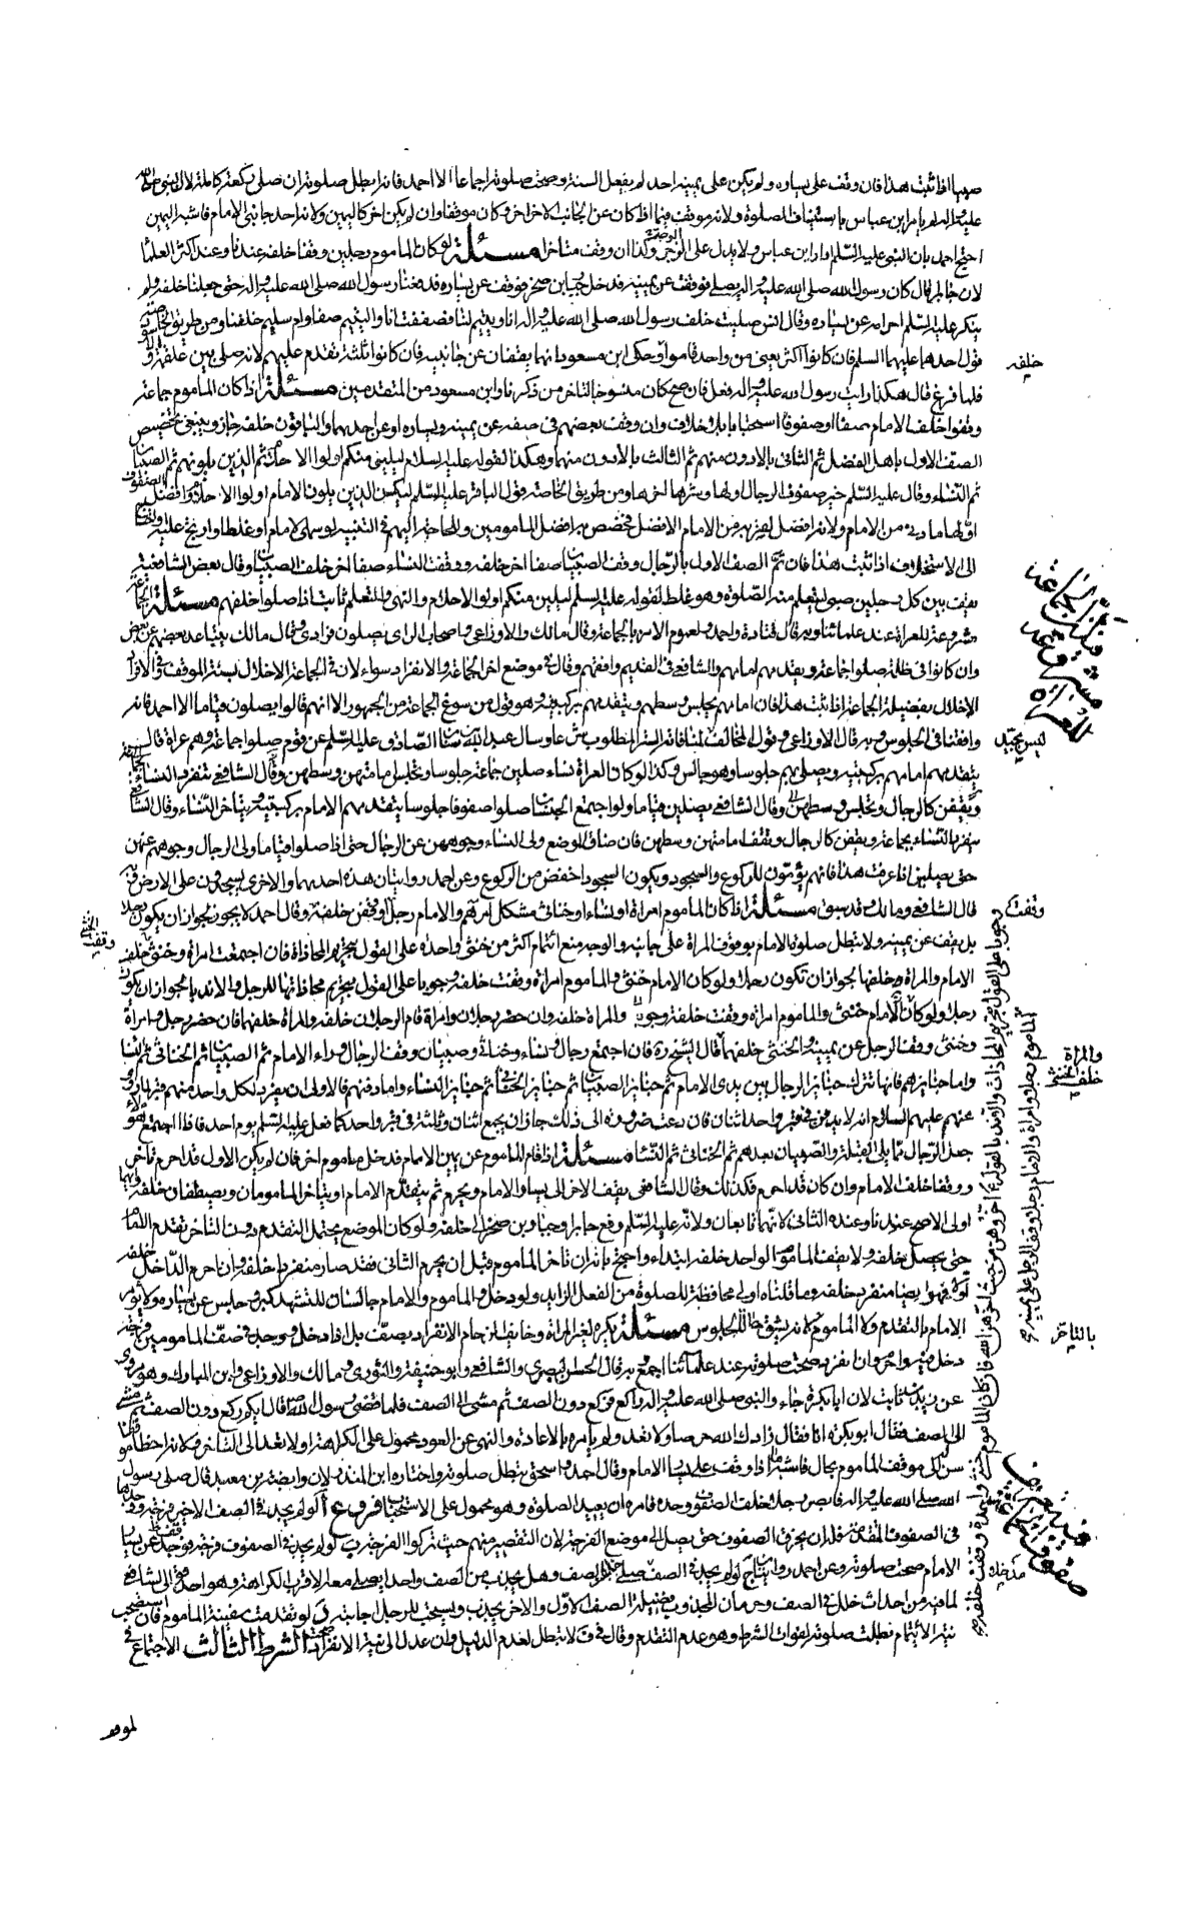 صهيبا اذا ثبت هذا فان وقف على يساره ولم يكن على يمينه احد لم يفعل السنة وصحت صلوته اجماعا الا احمد فانه ابطل صلوته ان صلى ركعة كاملة لان النبي صلى الله
عليه واله لم يامر ابن عباس باستيناف الصلوة ولانه موقف فيما اذا كان عن الجانب الاخر اخر وكان موقفا وان لم يكن اخر كاليمين ولانه احد جانبي الامام فاشبه اليمين
احتج احمد بان النبي عليه السلام ادار ابن عباس ولا يدل على الوجوب وكذا ان وقف متاخرا مسئلة لو كان الماموم رجلين وقفا خلفه عندنا وعند اكثر العلماء
لان جابرا قال كان رسول الله صلى الله عليه واله يصلي فوقفت عن يمينه فدخل جبار بن صخر فوقف عن يساره فدفعنا رسول الله صلى الله عليه واله حتى جعلنا خلفه ولم
ينكر عليه السلم احرامه عن يساره وقال انس صليت خلف رسول الله صلى الله عليه واله انا ويتيم لنا فصففت انا واليتيم صفا وام سليم خلفنا ومن طريق الخاصة
قول احدهما عليهما السلم فان كانوا اكثر يعني من واحد قاموا خلفه وحكى ابن مسعود انهما يقفان عن جانبيه فان كانوا ثلثة تقدم عليهم لانه صلى بين علقمة والاسود
فلما فرغ قال هكذا رايت رسول الله عليه واله فعل فان صح كان منسوخا لتاخر من ذكرنا وابن مسعود من المتقدمين مسئلة اذا كان الماموم جماعة
وقفوا خلف الامام صفا او صفوفا استحبابا بلا خلاف وان وقف بعضهم في صفه عن يمينه ويساره او عن احدهما والباقون خلفه جاز وينبغي تخصيص
الصف الاول باهل الفضل ثم الثاني بالادون منهم ثم الثالث بالادون منهما وهكذا لقوله عليه السلام ليليني منكم اولوا الاحلام ثم الذين يلونهم ثم الصبيان
ثم النساء وقال عليه السلم خير صفوف الرجال اولها وشرها اخرها ومن طريق الخاصة قول الباقر عليه السلم ليكن الذين يلون الامام اولوا الاحلام وافضل الصفوف
اولها ما دنى من الامام ولانه افضل لقربه من الامام الافضل فخصص به افضل المامومين وللحاجة اليهم في التنبيه لو سهى الامام او غلط او ارتج عليه ويحتاج
الى الاستخلاف اذا ثبت هذا فان تم الصف الاول بالرجال وقف الصبيان صفا اخر خلفه ووقفت النساء صفا اخر خلف الصبيان وقال بعض الشافعية
يقف بين كل رجلين صبي ليتعلم منه الصلوة وهو غلط لقوله عليه السلم ليلين منكم اولوا الاحلام والنهى والتعلم ثابت اذا صلوا خلفهم مسئلة الجماعة
مشروعة للعراة عند علمائنا وبه قال قتادة واحمد ولعموم الامر بالجماعة وقال مالك والاوزاعي واصحاب الراي يصلون فرادى وقال مالك يتباعد بعضهم عن بعض
وان كانوا في ظلمة صلوا جماعة ويقدمهم امامهم والشافعي في القديم وافقهم وقال في موضع اخر الجماعة والانفراد سواء لان في الجماعة الاخلال بسنة الموقف وفي الانفراد
الاخلال بفضيلة الجماعة اذا ثبت هذا فان امامهم يجلس وسطهم ويتقدمهم بركبتيه وهو قول من سوغ الجماعة من الجمهور الا انهم قالوا يصلون قياما الا احمد فانه
وافقنا في الجلوس وبه قال الاوزاعي وقول المخالف لمنافاته الستر المطلوب شرعا وسال عبد الله بن سنان الصادق عليه السلم عن قوم صلوا جماعة وهم عراة قال
يتقدمهم امامهم بركبتيه ويصلي بهم جلوسا وهو جالس وكذا لو كان العراة نساء صلين جماعة جلوسا وتجلس امامتهن وسطهن وقال الشافعي تنفرد النساء بالجماعة
ويقفن كالرجال وتجلس وسطهن وقال الشافعي يصلين قياما ولو اجتمع الجنسان صلوا صفوفا جلوسا يتقدمهم الامام بركبتيه ويتاخر النساء وقال الشافعي
ينفرد النساء بجماعة ويقفن كالرجال وتقف امامتهن وسطهن فان ضاق الموضع ولى النساء وجوههن عن الرجال حتى اذا صلوا قياما ولى الرجال وجوههم عنهن
حتى يصلين اذا عرفت هذا فانهم يؤمون للركوع والسجود ويكون السجود اخفض من الركوع وعن احمد روايتان هذه احديهما والاخرى يسجدون على الارض وبه
قال الشافعي ومالك وقد سبق مسئلة اذا كان الماموم امراة او نساء او خناثى مشكل امرهم والامام رجل وقفن خلفه وقال احمد لا يجوز لجواز ان يكون رجلا
بل يقف عن يمينه ولا تبطل صلوة الامام بوقوف المراة على جانبه والوجه منع ائتمام اكثر من خنثى واحدة على القول بتحريم المحاذاة فان اجتمعت امراة وخنثى وقف الخنثى خلف
الامام والمراة وخلفها لجواز ان تكون رجلا ولو كان الامام خنثى والماموم امراة وقفت خلفه وجوبا على القول بتحريم محاذاتها للرجل والا ندبا لجواز ان يكون
رجلا ولو كان الامام خنثى والماموم امراة وقفت خلفه وجوبا والمراة خلفه وان حضر رجلان وامراة قام الرجلان خلفه والمراة خلفها فان حضر رجل وامراة
وخنثى وقف الرجل عن يمينه والخنثى خلفهما قال الشيخ ره فان اجتمع رجال ونساء وخناثى وصبيان وقف الرجال وراء الامام ثم الصبيان ثم الخناثى ثم النساء
واما جنايزهم فانها تترك جنايز الرجال بين يدي الامام ثم جنايز الصبيان ثم جنايز الخناثى ثم جنايز النساء واما دفنهم فالاولى ان يفرد لكل واحد منهم قبر لما روي
عنهم عليهم السلام انه لا يدفن في قبر واحد اثنان فان دعت ضرورة الى ذلك جاز ان يجمع اثنان وثلثة في قبر واحد كما فعل عليه السلم يوم احد فاذا اجتمع هؤلاء
جعل الرجال مما يلي القبلة والصبيان بعدهم ثم الخناثى ثم النساء مسئلة اذا قام الماموم عن يمين الامام فدخل ماموم اخر فان لم يكن الاول قد احرم تاخر
ووقفا خلف الامام وان كان قد احرم فكذلك وقال الشافعي يقف الاخر الى يسار الامام ويحرم ثم يتقدم الامام او يتاخر المامومان ويصطفان خلفه وايهما
اولى الاصح عندنا وعنده الثاني لانهما تابعان ولانه عليه السلم دفع جابرا وجبار بن صخر الى خلفه ولو كان الموضع يحتمل التقدم دون التاخر تقدم الامام
حتى يحصل خلفه ولا يقف الماموم الواحد خلفه ابتداء واحتج بانه ان تاخر الماموم قبل ان يحرم الثاني فقد صار منفردا خلفه وان احرم الداخل خلفه
اولا فهو ايضا منفرد خلفه وما قلناه اولى محافظة للصلوة من الفعل الزايد ولو دخل والماموم والامام جالسان للتشهد كبر وجلس عن يساره ولا يؤثر
الامام بالتقدم ولا الماموم لانه يشق حالة الجلوس مسئلة يكره لغير المراة وخائف الزحام الانفراد بصف بل اذا دخل ووجد في صف المامومين فرجة
دخل فيه واحرم وان انفرد صحت صلوته عند علمائنا اجمع وبه قال الحسن البصري والشافعي وابو حنيفة والثوري ومالك والاوزاعي وابن المبارك وهو مروي
عن زيد بن ثابت لان ابا بكرة جاء والنبي صلى الله عليه واله راكع فركع دون الصف ثم مشى الى الصف فلما قضى رسول الله ص قال ايكم ركع دون الصف ثم مشى
الى الصف فقال ابو بكرة انا فقال زادك الله حرصا ولا تعد ولم يامره بالاعادة والنهي عن العود محمول على الكراهة او لا تعد الى التاخر ولانه اخطا
سن له موقف الماموم بحال فاشبه ما اذا وقف على يسار الامام وقال احمد واسحق تبطل صلوته واختاره ابن المنذر لان وابصة بن معبد قال صلى رسول
الله صلى الله عليه واله فابصر رجلا خلف الصفوف وحده فامره ان يعيد الصلوة وهو محمول على الاستحباب فروع ا لو لم يجد في الصف الاخير فرجة ووجدها
في الصفوف المتقدمة فله ان يخرق الصفوف حتى يصل الى موضع الفرجة لان التقصير منهم حيث تركوا الفرجة ب لو لم يجد في الصفوف فرجة فوقف عن يسار
الامام صحت صلوته وعن احمد روايتان ج لو لم يجد في الصف مدخلا صلى خلف الصف وهل يجذب من الصف واحدا يصلي معه الاقرب الكراهة وهو احد قولي الشافعي
لما فيه من احداث خلل في الصف وحرمان المجذوب فضيلة الصف الاول والاخر يجذب ويستحب للرجل اجابته د لو تقدمت سفينة الماموم فان استصحب
نية الائتمام بطلت صلوته لفوات الشرط وهو عدم التقدم وقال في ف لا تبطل لعدم الدليل وان عدل الى نية الانفراد صحت الشرط الثالث الاجتماع في
لموقف
خلفه
في ان الجماعة
مشروعة عند
للعراة
ليس بجيد
وقفت
وقف الخنثى
والمراة
خلف الخنثى
بالتاخر